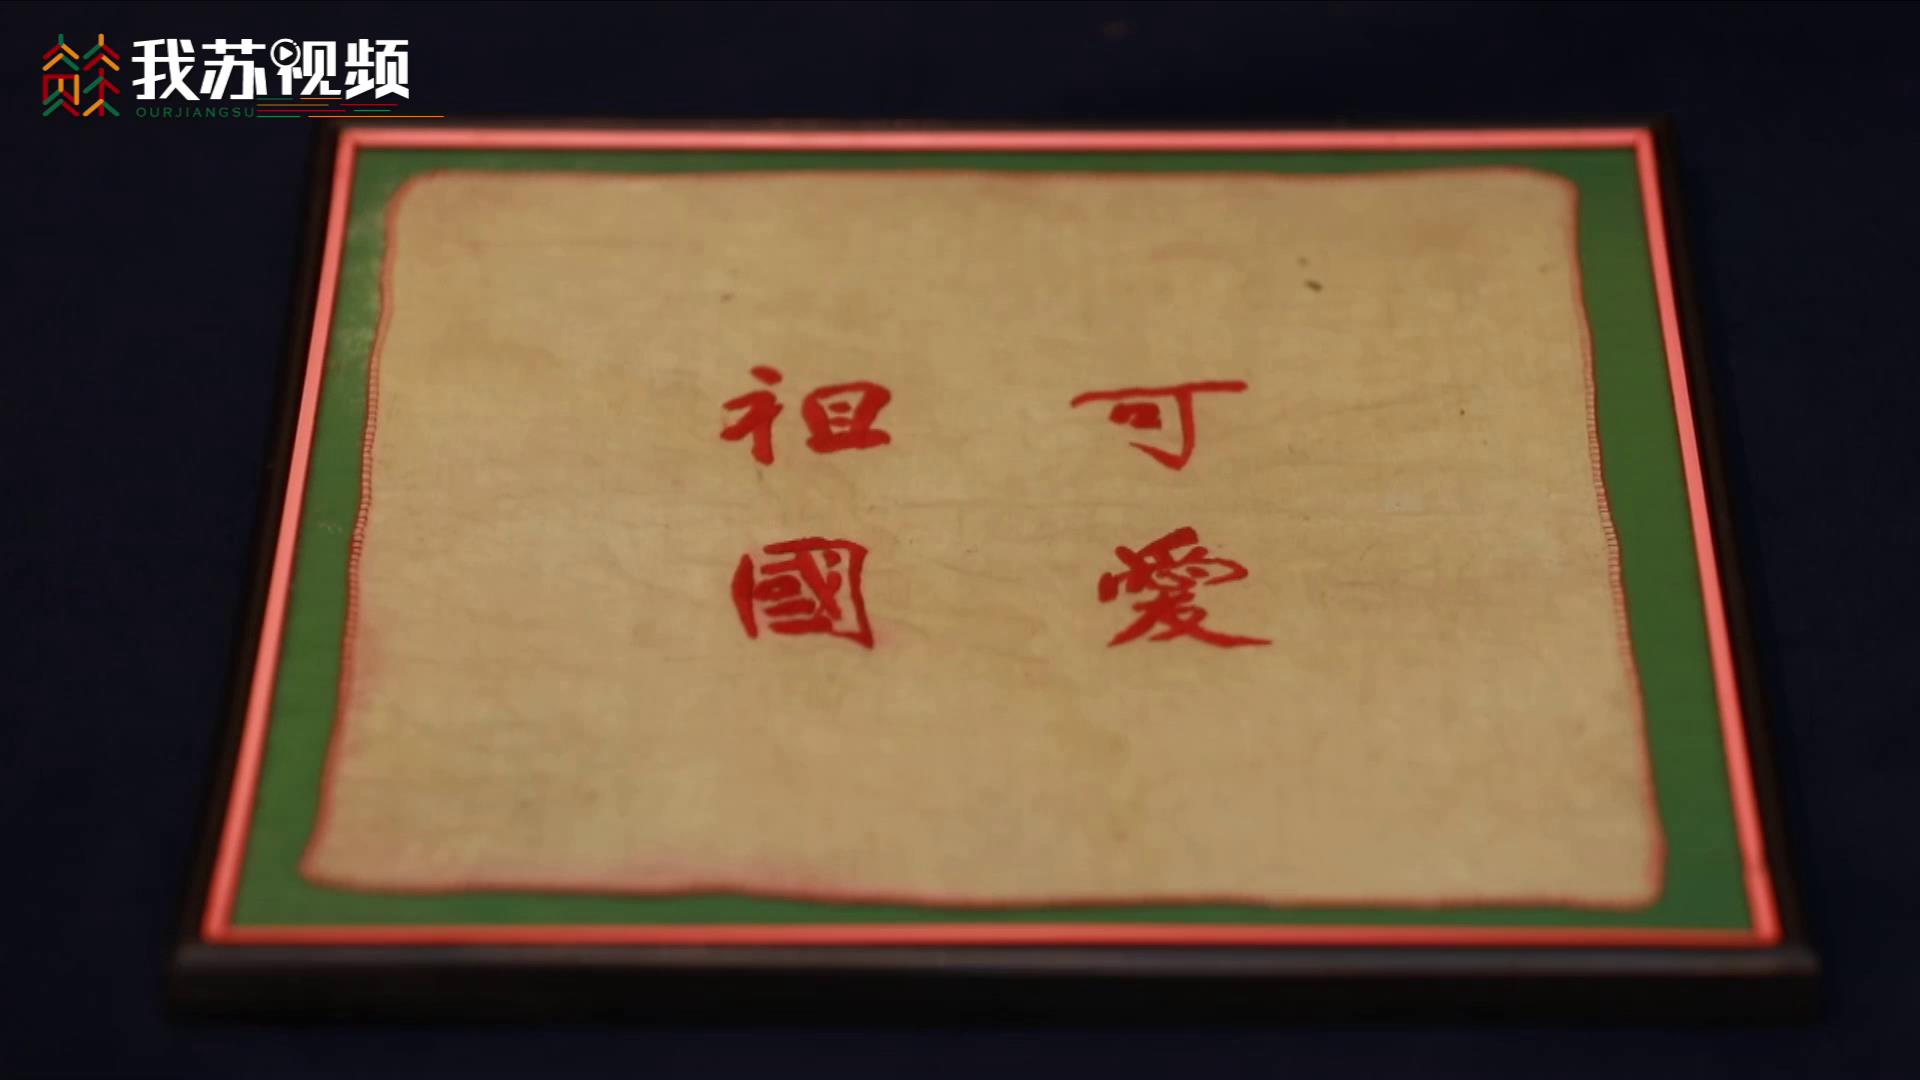 我苏视频
OURJIANGSU
可愛
祖國